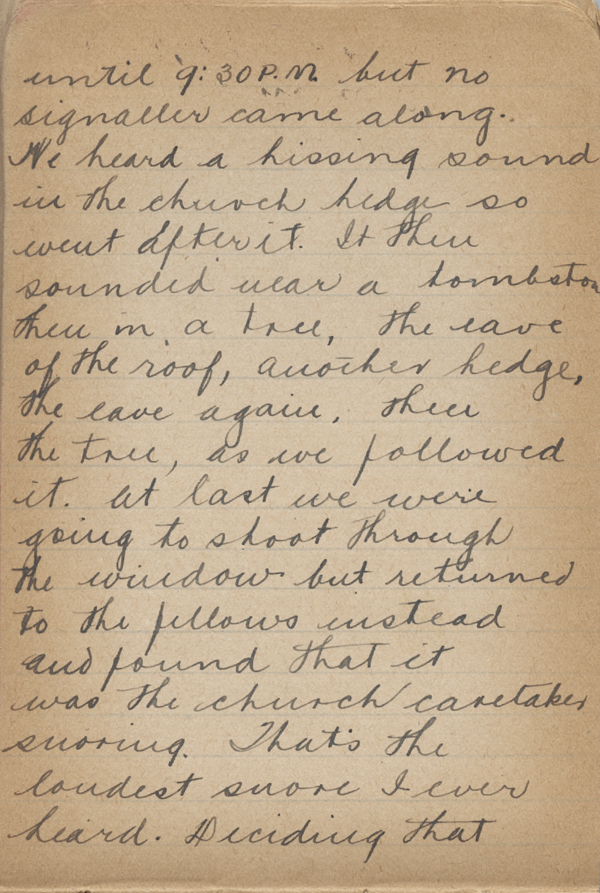 until 9:30 P.M. but no
signaller came along.
We heard a hissing sound
in the church hedge so
went after it. It then
sounded near a tombston
then in a tree, the eave
of the roof, another hedge,
the eave again, then
the tree, as we followed
it. At last we were
going to shoot through
the window but returned
to the fellows instead
and found that it
was the church caretaker
snoring. That's the
loudest snore I ever
heard. Deciding that